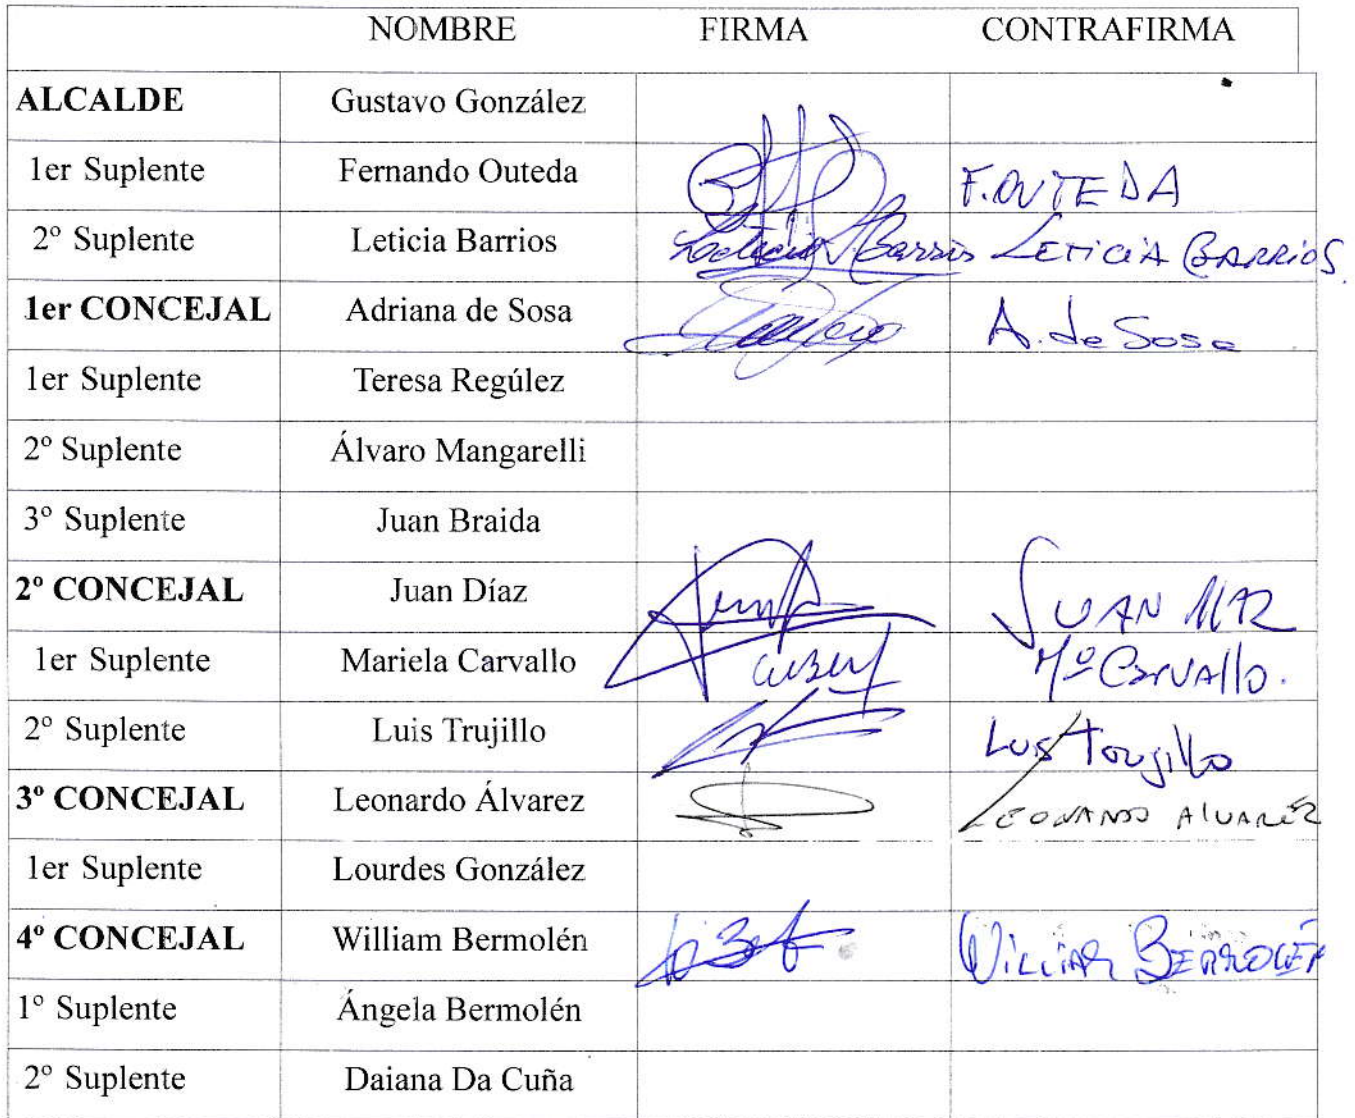 NOMBRE FIRMA CONTRAFIRMA
ALCALDE Gustavo González
1er Suplente Fernando Outeda F. OUTEDA
2º Suplente Leticia Barrios Leticia Barrios LETICIA BARRIOS
1er CONCEJAL Adriana de Sosa A. de Sosa
1er Suplente Teresa Regúlez
2º Suplente Álvaro Mangarelli
3º Suplente Juan Braida
2º CONCEJAL Juan Díaz JUAN
1er Suplente Mariela Carvallo Mª Carvallo.
2º Suplente Luis Trujillo Luis Trujillo
3º CONCEJAL Leonardo Álvarez LEONARDO ALVAREZ
1er Suplente Lourdes González
4º CONCEJAL William Bermolén WILLIAM BERMOLEN
1º Suplente Ángela Bermolén
2º Suplente Daiana Da Cuña